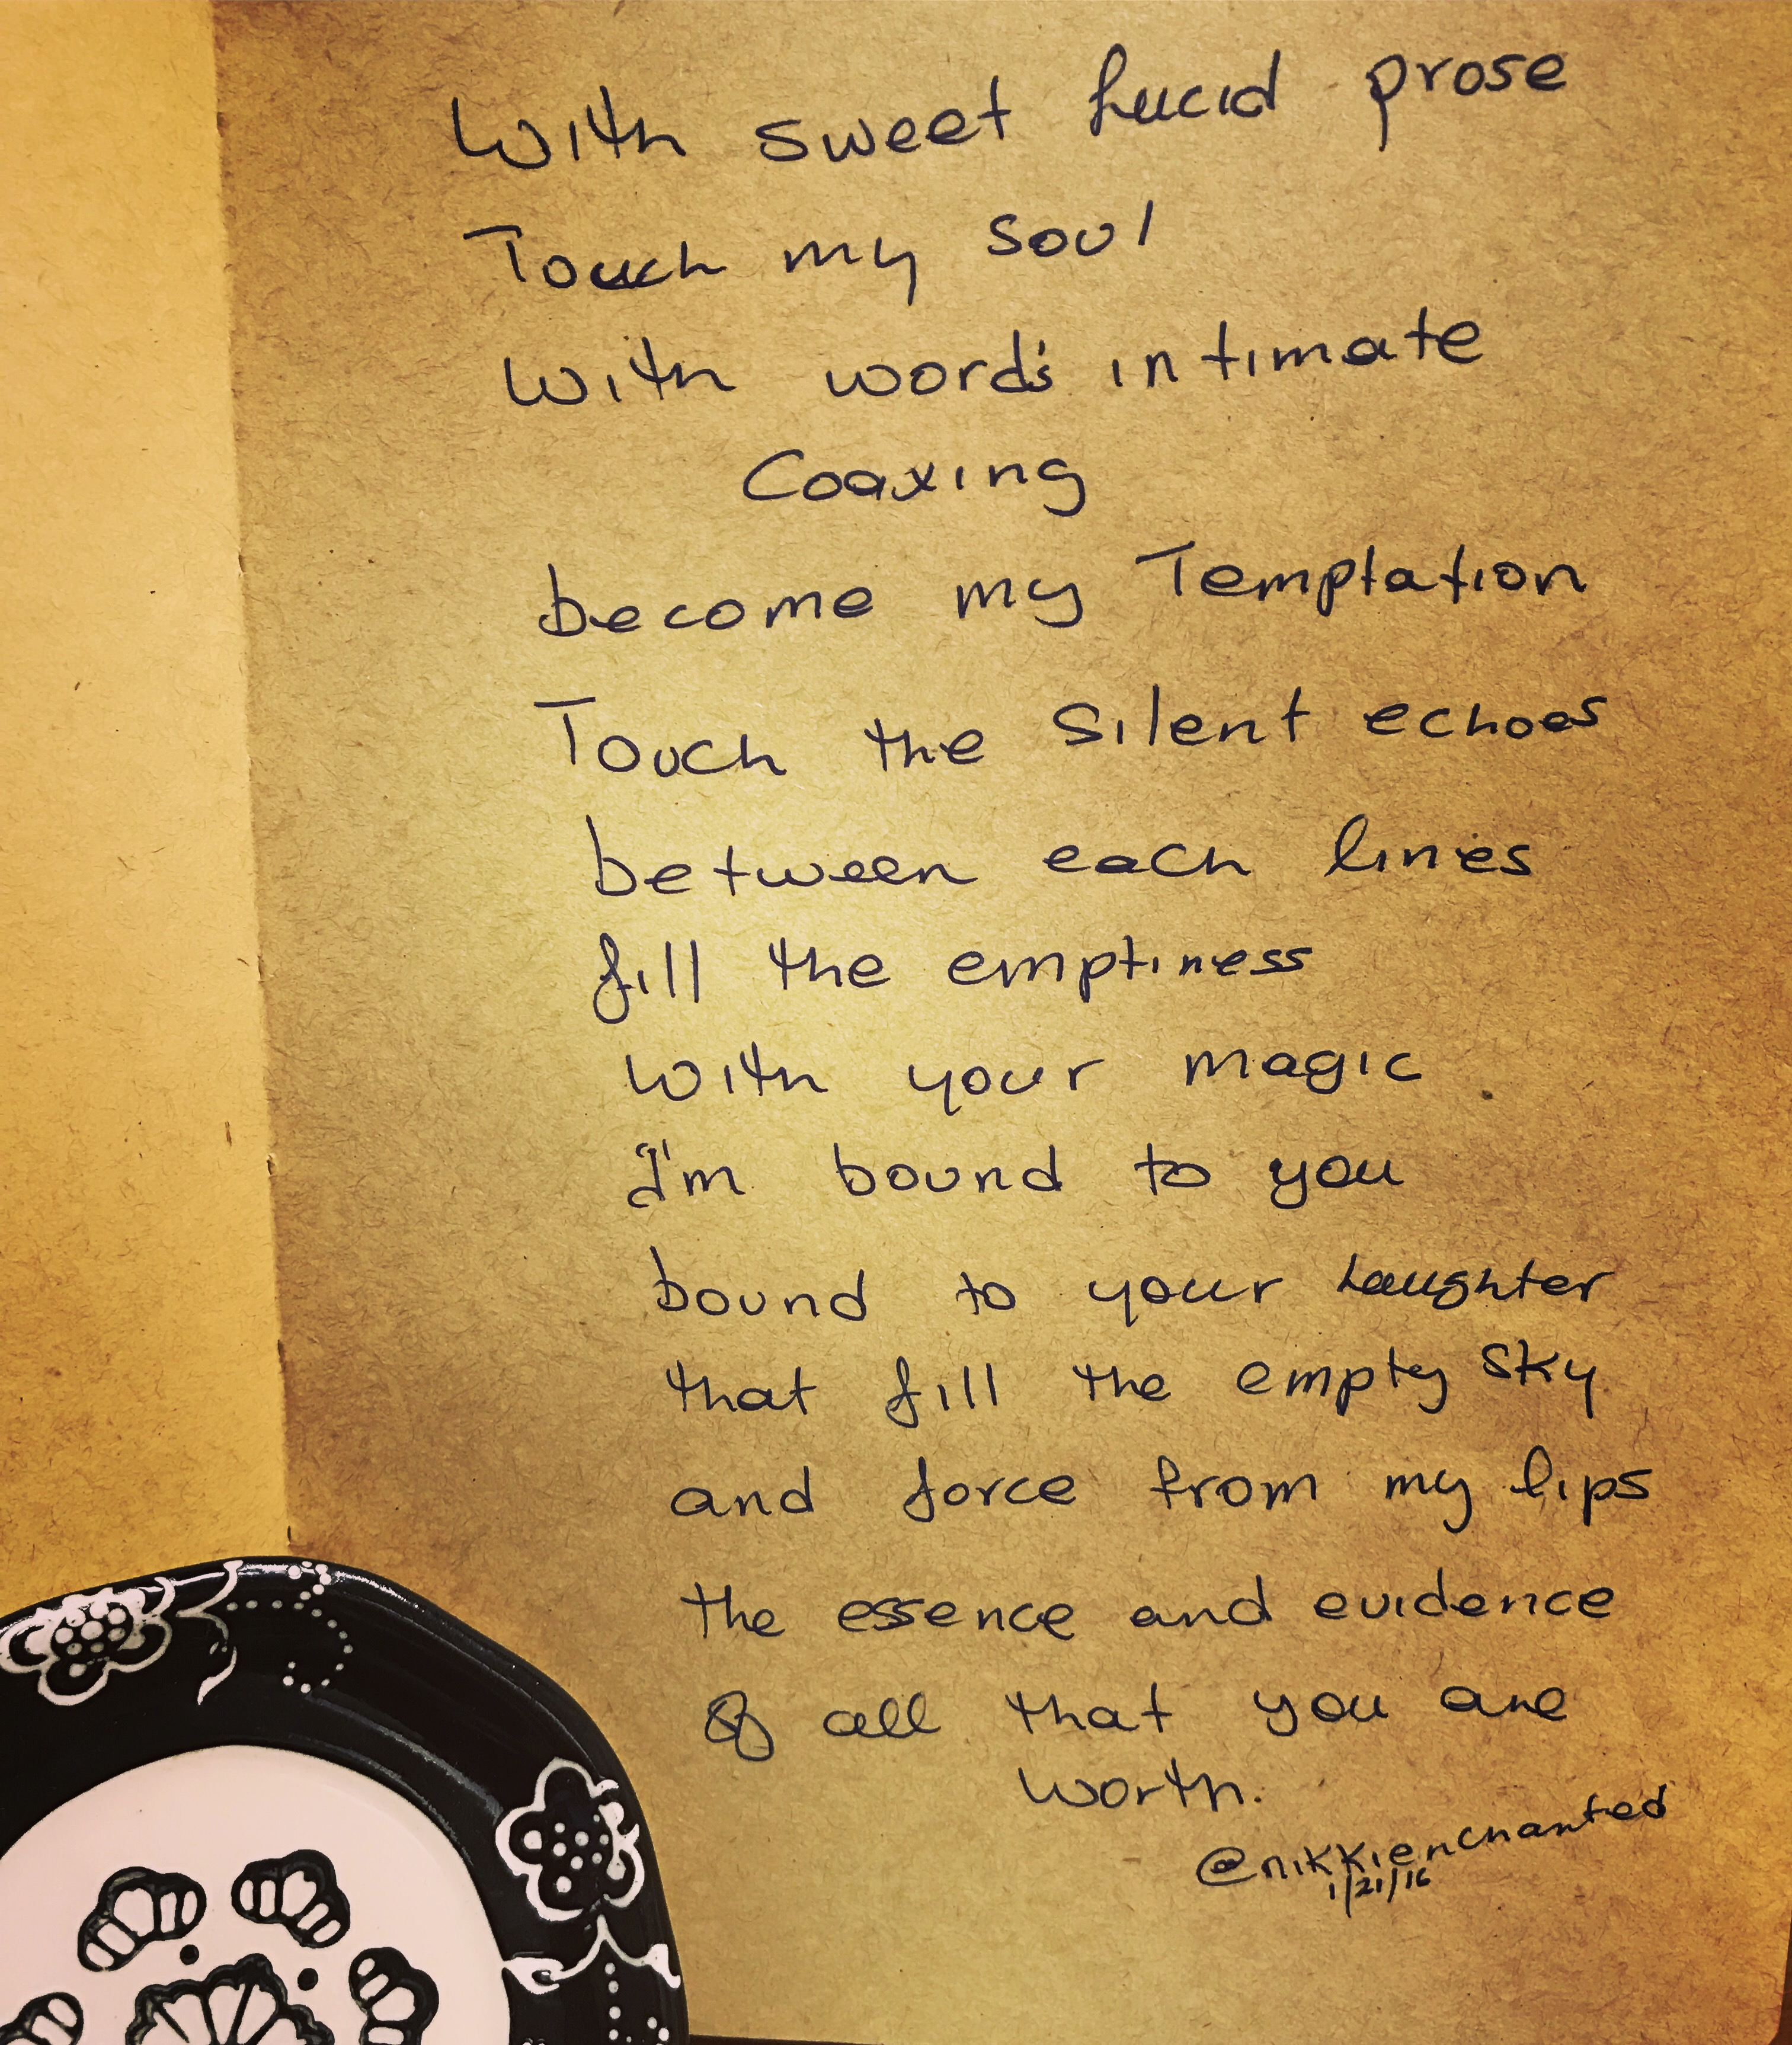 With sweet Lucid prose
Touch my soul
With word's intimate
Coaxing
become my Temptation
Touch the Silent echoes
between each lines
fill the emptiness
with your magic
I'm bound to you
bound to your Laughter
that fill the empty sky
and force from my lips
the essence and evidence
Of all that you are
worth.
@nikkienchanted
1/21/16